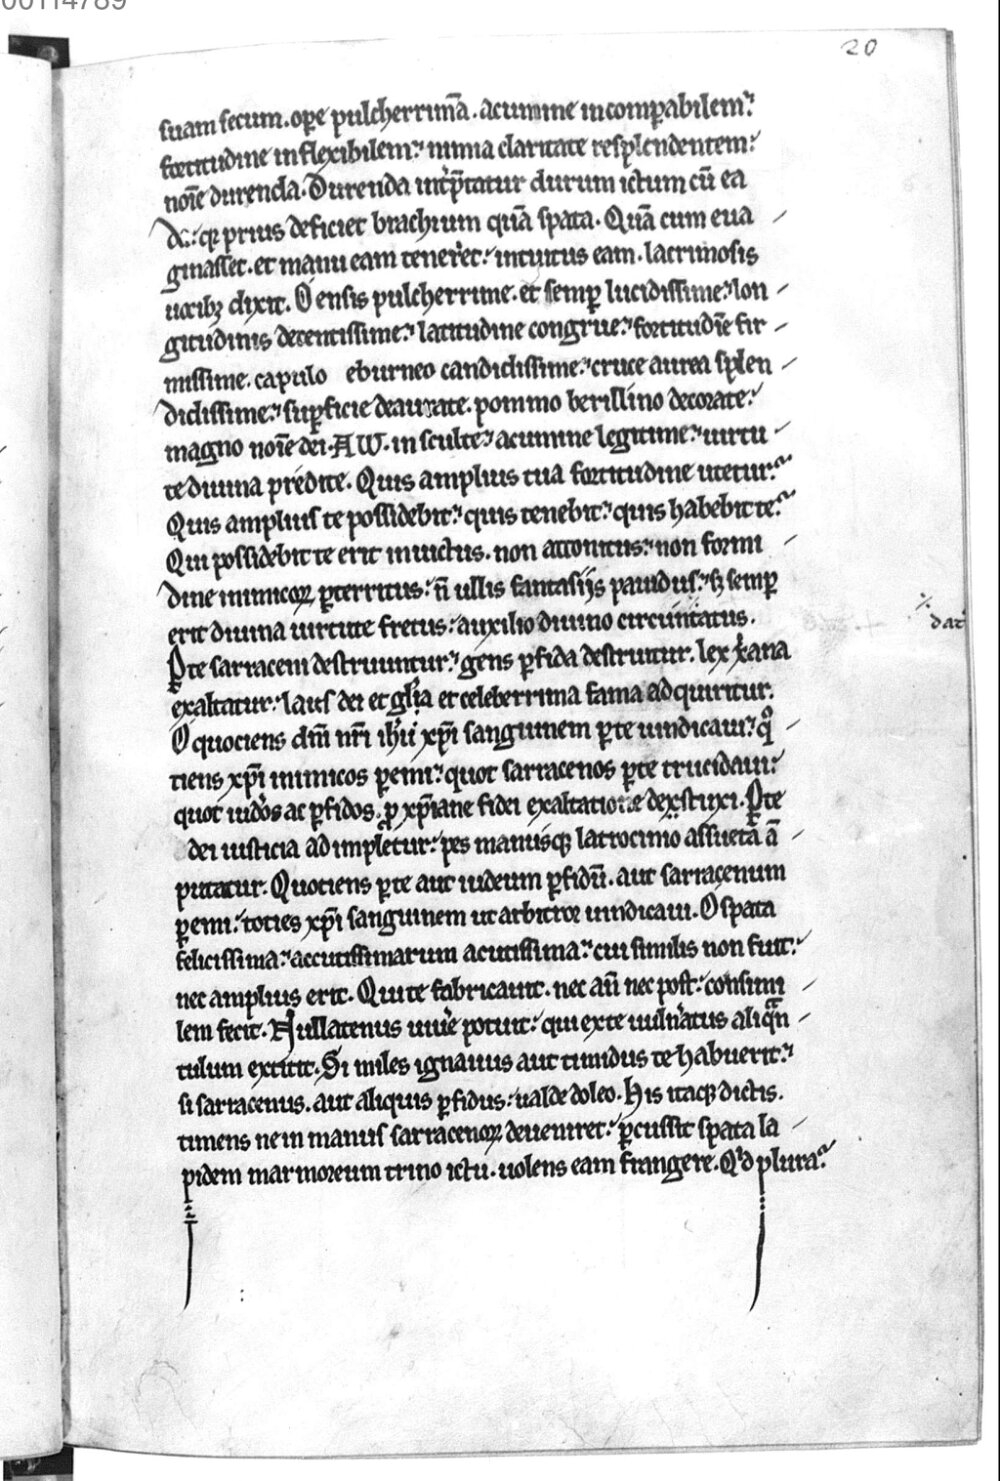 00114789
20
suam secum. oꝑe pulcherrimā. acumine incomꝑabilem?
fortitudine inflexibilem? nimia claritate resplendentem?
noīe durenda. Durenda int̄p̄tatur durum ictum cū ea
dā? qꝛ prius deficiet brachium quā spata. Quā cum eua
ginasset. et manu eam teneret? intuitus eam. lacrimosis
uocibꝫ dixit. O ensis pulcherrime. et semꝑ lucidissime? lon
gitudinis decentissime? latitudine congrue? fortitudīe fir
missime. capulo eburneo candidissime? cruce aurea splen
didissime? suꝑficie deaurate. pommo berillino decorate?
magno noīe dei. A W. insculte? acumine legitime? uirtu
te diuina predite. Quis amplius tua fortitudine utetur?
Quis amplius te possidebit? quis tenebit? quis habebit te?
Qui possidebit te erit inuictus. non attonitus? non formi
dine inimicoꝝ ꝑterritus? n̄ ullis fantasijs pauidus? sꝫ semꝑ
erit diuina uirtute fretus? auxilio diuino circundatus.
dat
Ꝑte sarraceni destruuntur? gens ꝑfida destruitur. lex xr̄ana
exaltatur? laus dei et gl̄ia et celeberrima fama adquiritur.
O quociens dn̄i nr̄i ih̄u xp̄i sanguinem ꝑte uindicaui? qͦ
tiens xp̄i inimicos ꝑemi? quot sarracenos ꝑte trucidaui?
quot iudeos ac ꝑfidos. ꝓ xp̄iane fidei exaltatione dexstruxi. Ꝑte
dei iusticia adimpletur? pes manusqꝫ latrocinio assueta ā
putatur. Quociens ꝑte aut iudeum ꝑfidū. aut sarracenum
ꝑemi? tocies xp̄i sanguinem ut arbitror uindicaui. O spata
felicissima? accutissimarum acutissima? cui similis non fuit?
nec amplius erit. Qui te fabricauit. nec an̄ nec post? consimi
lem fecit. Nullatenus uiuē potuit? qui exte uuln̄atus aliqn̄
tulum extitit. Si miles ignauus aut timidus te habuerit?
si sarracenus. aut aliquis ꝑfidus? ualde doleo. His itaqꝫ dictis.
timens ne in manus sarracenoꝝ deueniret? ꝑcussit spata la
pidem marmoreum trino ictu. uolens eam frangere. Qͥd plura?